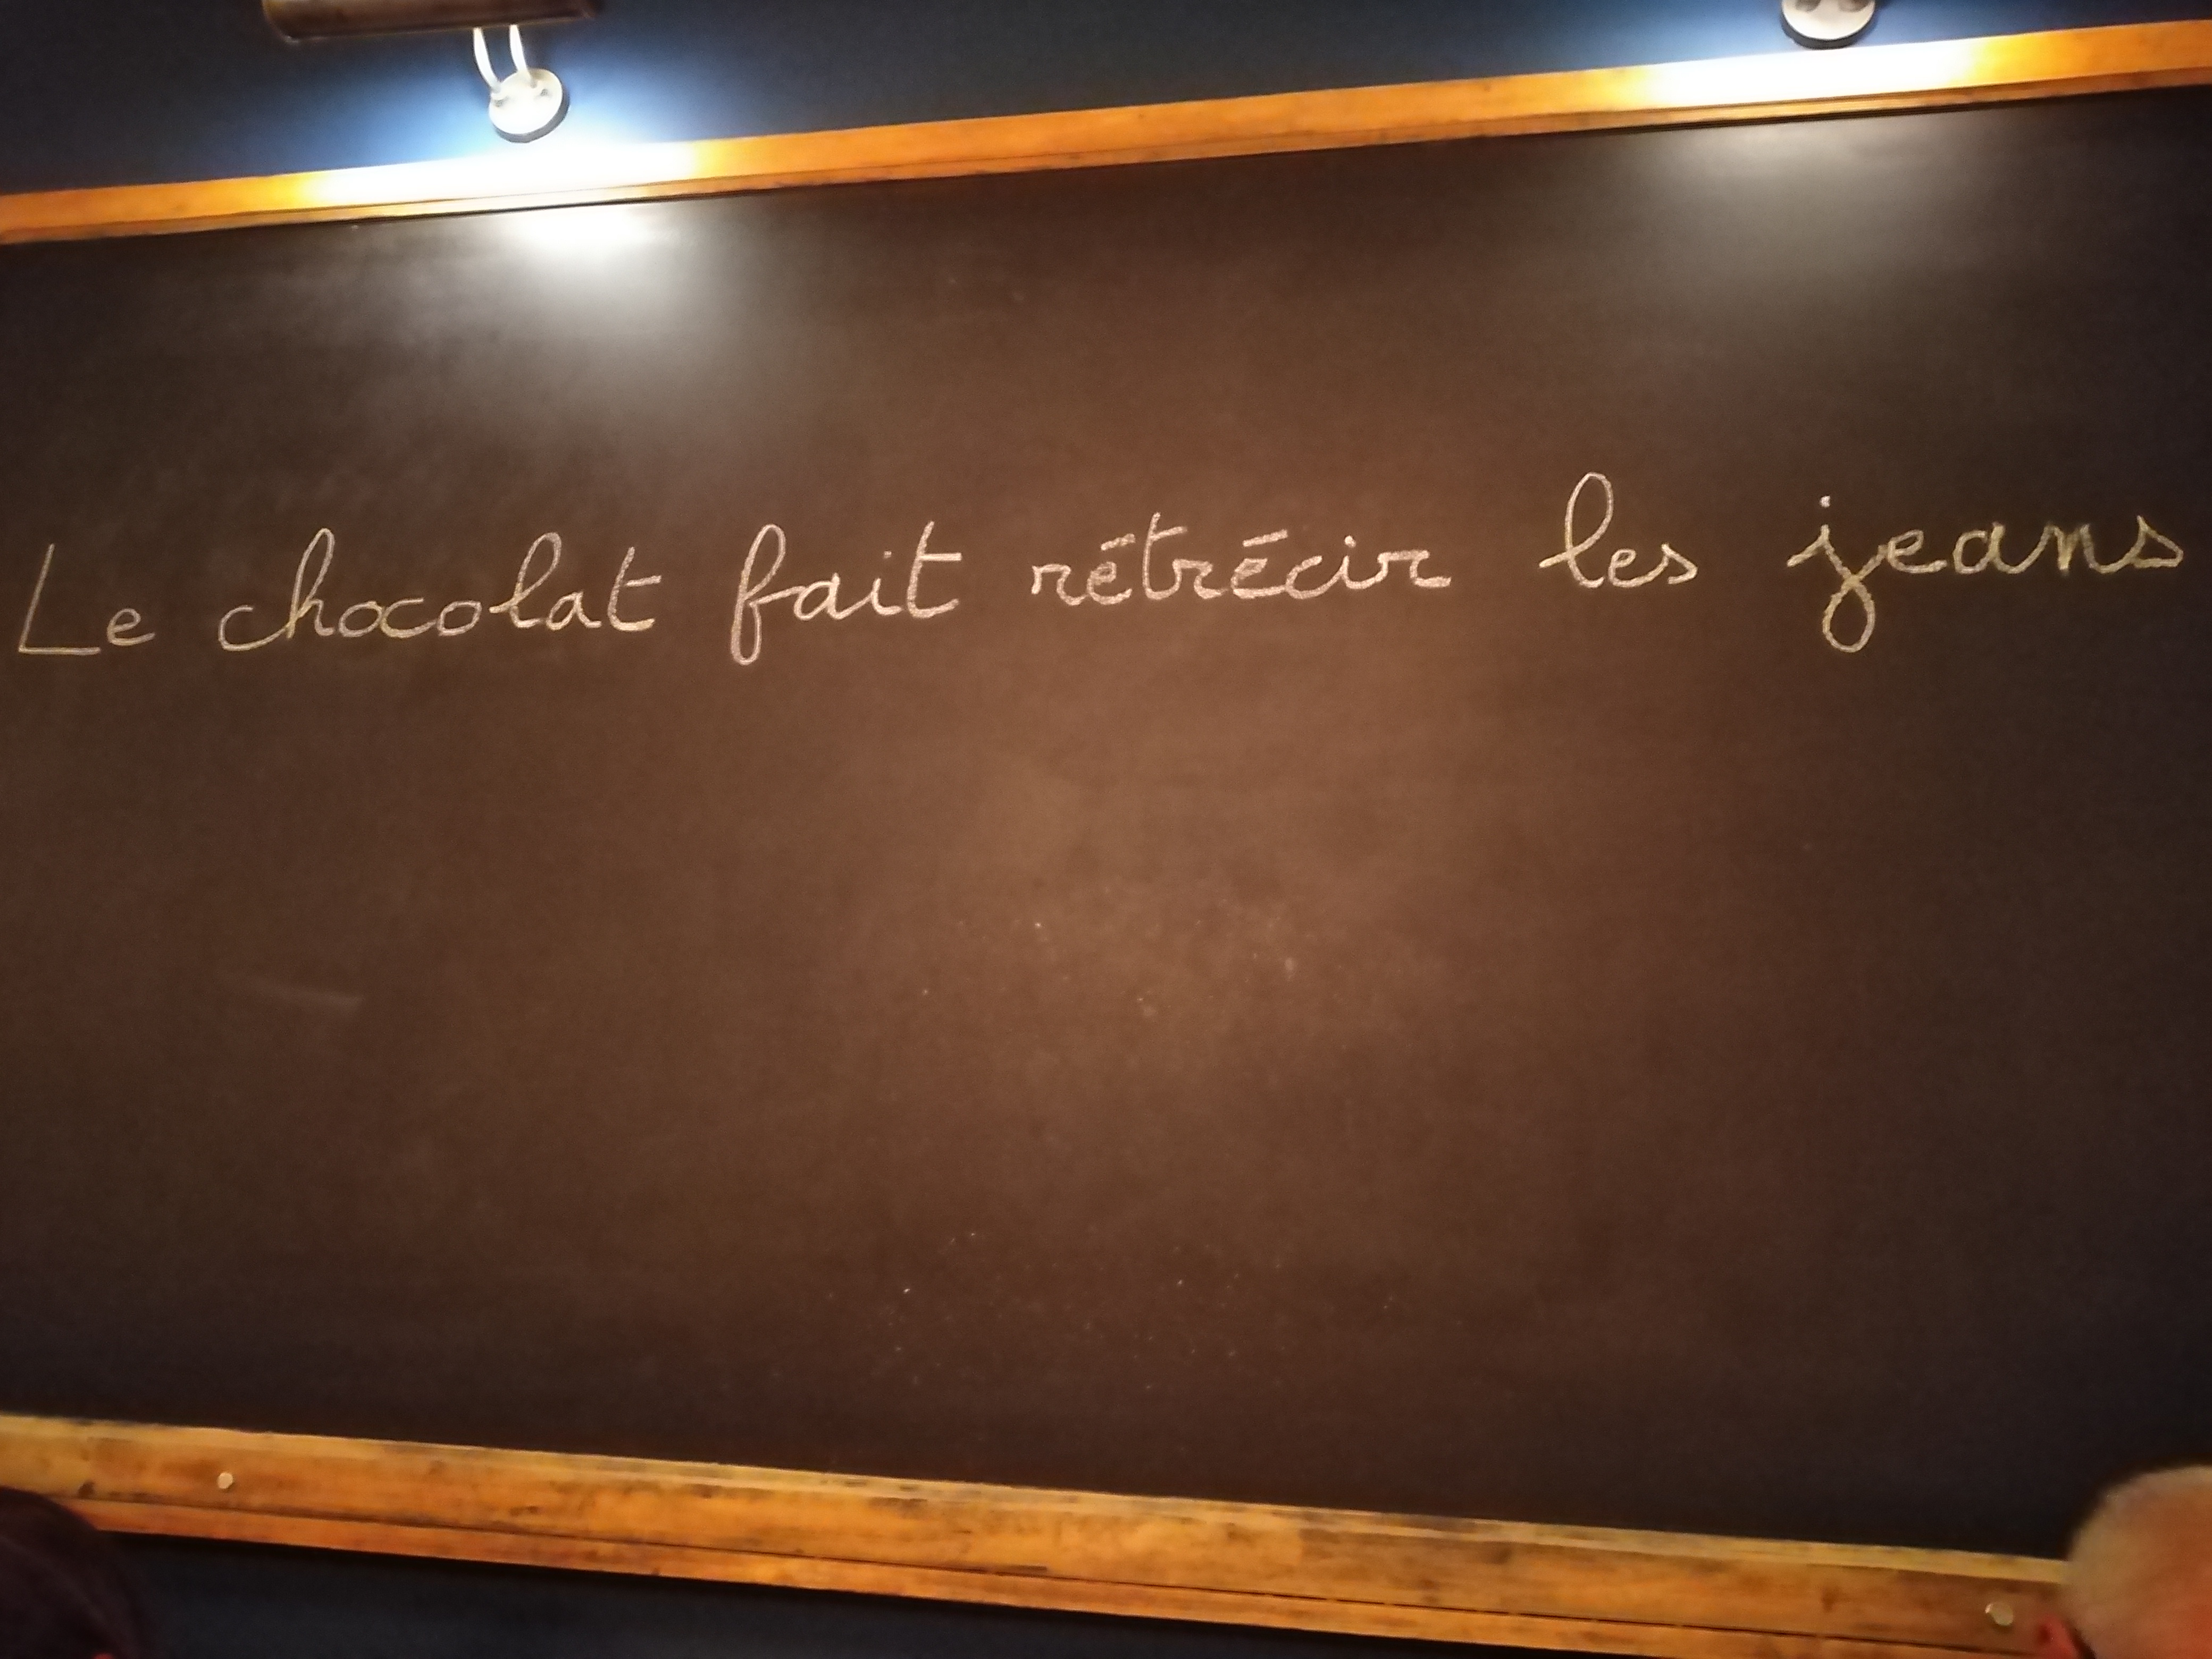 Le chocolat fait rétrécir les jeans